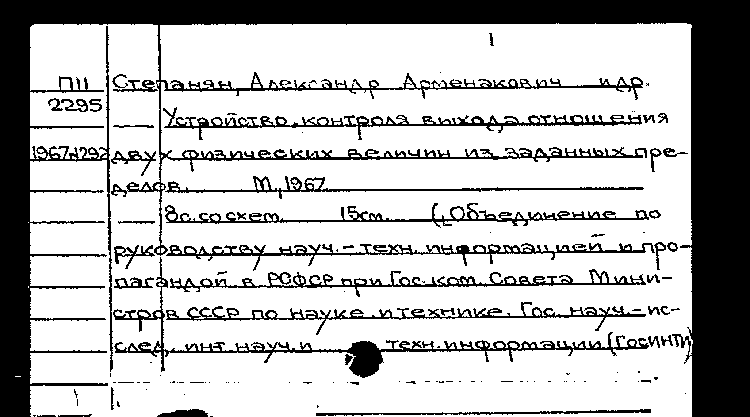 1
П11 Степанян, Александр Арменакович и др.
2295
Устройство контроля выхода отношения
1967н292 двух физических величин из заданных пре-
делов. М., 1967
8с. со схем. 15см. (Объединение по
руководству науч.-техн. информацией и про-
пагандой в РСФСР при Гос. ком. Совета Мини-
стров СССР по науке и технике. Гос. науч.-ис-
след. инт. науч. и техн. информации (ГосИНТИ)